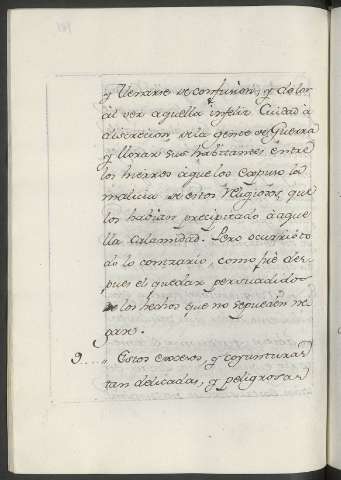 y llenarse de confusion, y dolor
al ver aquella infeliz Ciudad à
discrecion de la gente de Guerra
y llorar sus habitantes entre
los hierros à que los expuso la
malicia de estos Religiosos, que
los habian precipitado à aque
lla calamidad. Pero ocurrio to
do lo contrario, como fue des-
pues el quedar persuadidos
de los hechos que no se pueden ne
gar.
9.... „ Estos excesos, y coyunturas
tan delicadas, y peligrosas